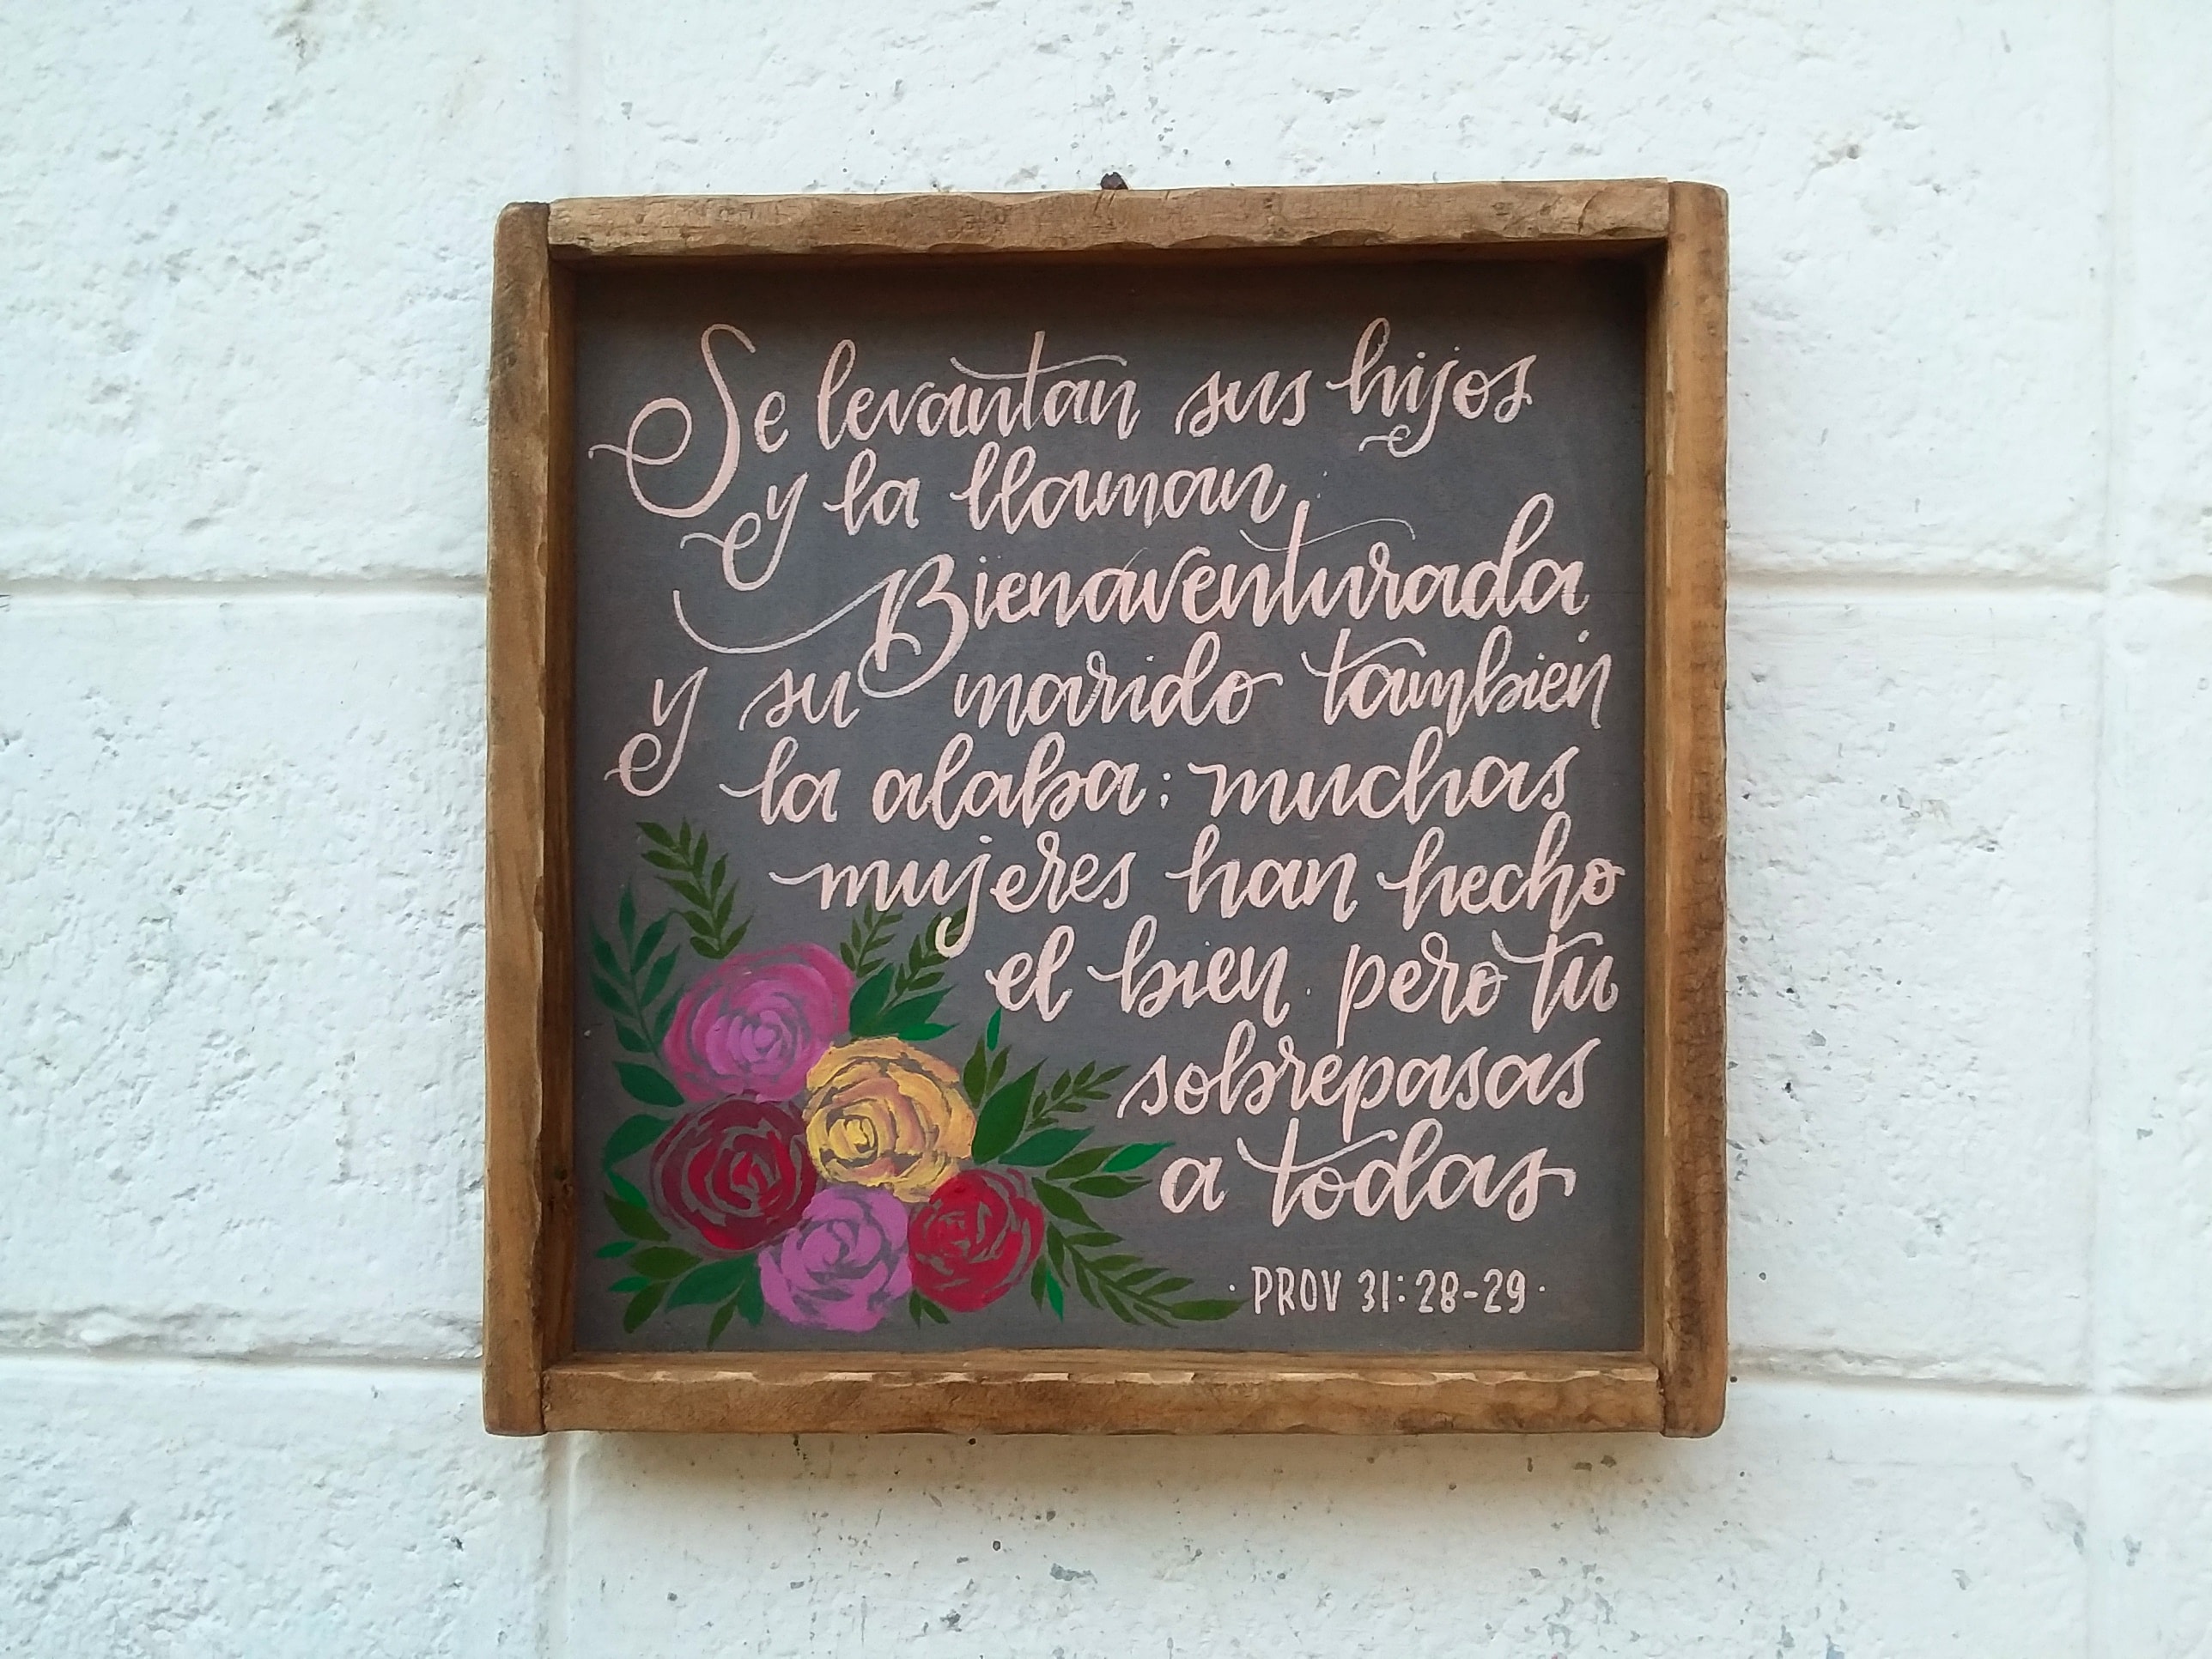 Se levantan sus hijos
y la llaman
Bienaventurada
y su marido también
la alaba: muchas
mujeres han hecho
el bien. pero tu
sobrepasas
a todas
· PROV 31:28-29 ·